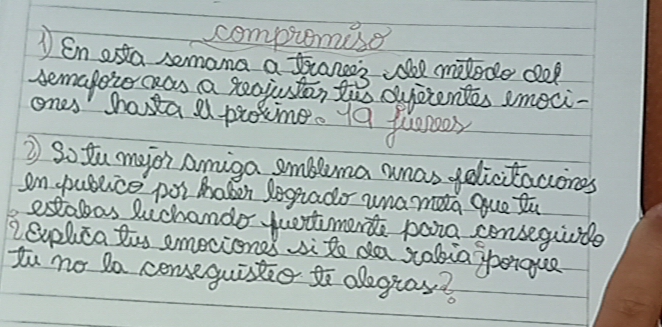 compromiso
1) En esta semana a travez del metodo del
semaforo vas a reajustar tus diferentes emoci-
ones hasta el proximo. 19 jueves
2) Si tu mejor amiga emblema unas felicitaciones
en publico por haber logrado una meta que tu
estabas luchando fuertemente para conseguirlo
¿Explica tus emociones si te da rabia porque
tu no la conseguisteo te alegras?